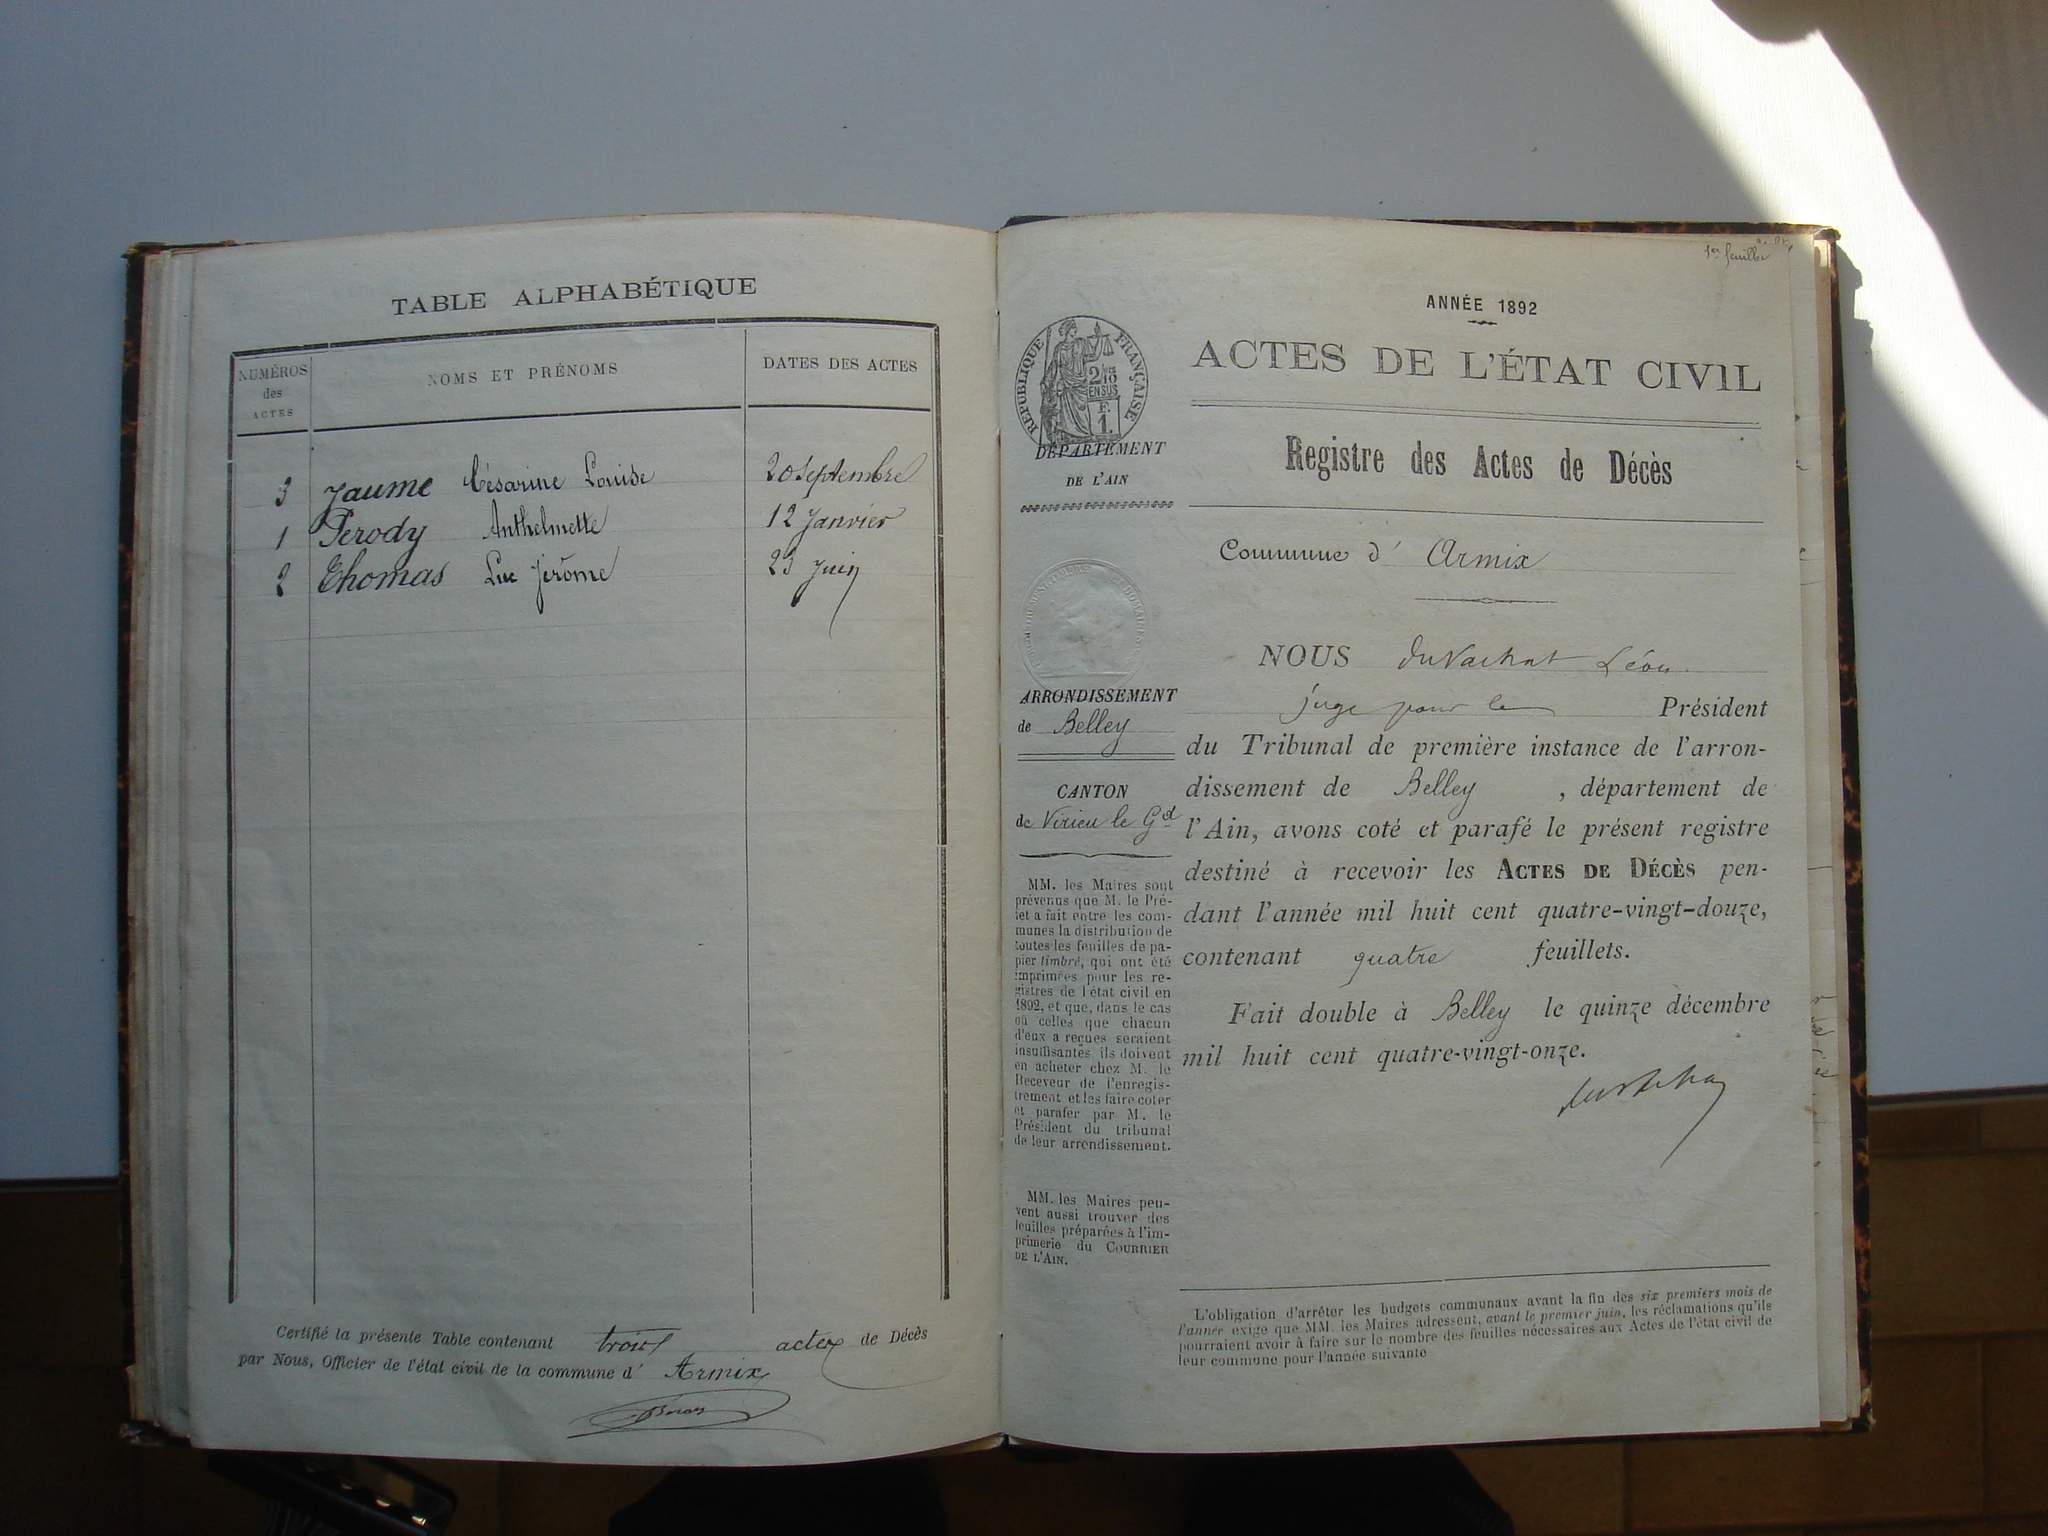 TABLE ALPHABÉTIQUE
NUMÉROS
des
ACTES
NOMS ET PRÉNOMS
DATES DES ACTES
3 Jaume Césarine Louise 20 Septembre
1 Perody Anthelmette 12 Janvier
2 Thomas Luc Jérôme 23 Juin
Certifié la présente Table contenant trois actes de Décès
par Nous, Officier de l'état civil de la commune d' Armix
1er feuillet
ANNÉE 1892
ACTES DE L'ÉTAT CIVIL
Registre des Actes de Décès
Commune d' Armix
NOUS duVachat Léon
juge pour le Président
du Tribunal de première instance de l'arron-
dissement de Belley , département de
l'Ain, avons coté et parafé le présent registre
destiné à recevoir les ACTES DE DÉCÈS pen-
dant l'année mil huit cent quatre-vingt-douze,
contenant quatre feuillets.
Fait double à Belley le quinze décembre
mil huit cent quatre-vingt-onze.
RÉPUBLIQUE FRANÇAISE
2/10
EN SUS
F.
1.
DÉPARTEMENT
DE L'AIN
ARRONDISSEMENT
de Belley
CANTON
de Virieu le Gd
MM. les Maires sont
prévenus que M. le Pré-
fet a fait entre les com-
munes la distribution de
toutes les feuilles de pa-
pier timbré, qui ont été
imprimées pour les re-
gistres de l'état civil en
1892, et que, dans le cas
où celles que chacun
d'eux a reçues seraient
insuffisantes, ils doivent
en acheter chez M. le
Receveur de l'enregis-
trement et les faire coter
et parafer par M. le
Président du tribunal
de leur arrondissement.
MM. les Maires peu-
vent aussi trouver des
feuilles préparées à l'im-
primerie du COURRIER
DE L'AIN.
L'obligation d'arrêter les budgets communaux avant la fin des six premiers mois de
l'année exige que MM. les Maires adressent, avant le premier juin, les réclamations qu'ils
pourraient avoir à faire sur le nombre des feuilles nécessaires aux Actes de l'état civil de
leur commune pour l'année suivante